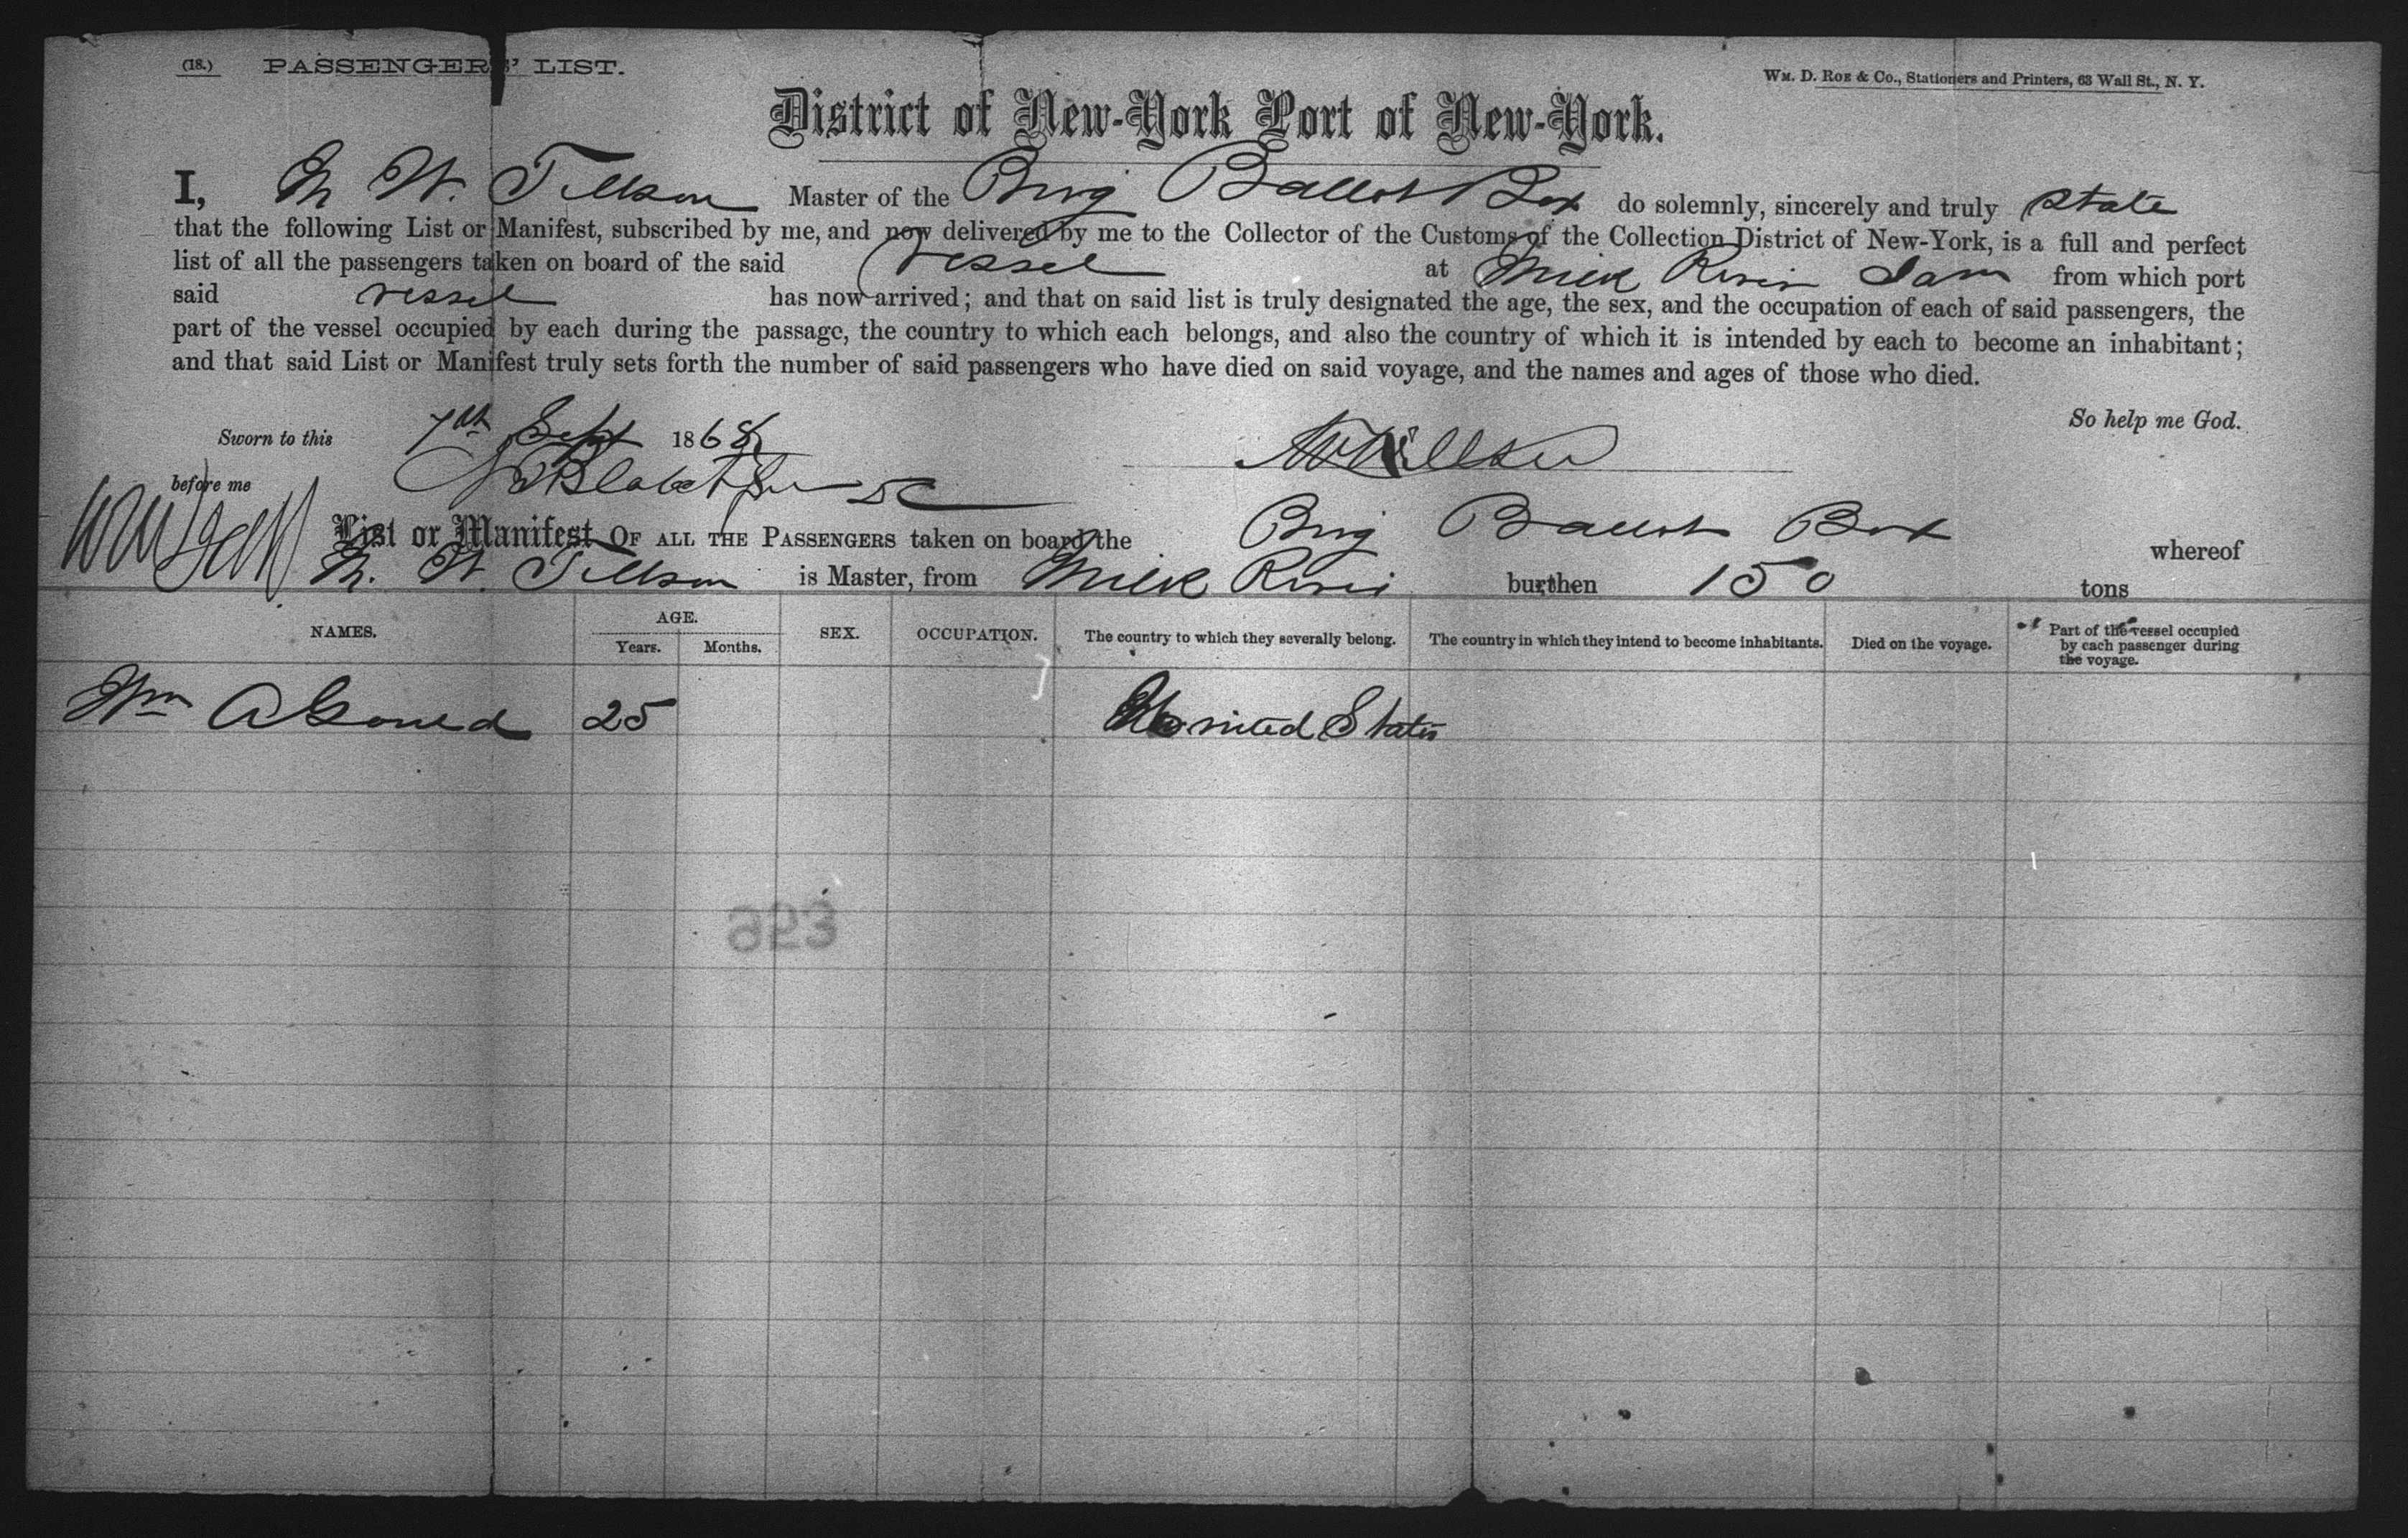 (18.) PASSENGERS' LIST.
Wm. D. Roe & Co., Stationers and Printers, 63 Wall St., N. Y.
District of New-York Port of New-York.
I, M. W. Tillson Master of the Brig Ballot Box do solemnly, sincerely and truly state
that the following List or Manifest, subscribed by me, and now delivered by me to the Collector of the Customs of the Collection District of New-York, is a full and perfect
list of all the passengers taken on board of the said vessel at Milk River Jam from which port
said vessel has now arrived; and that on said list is truly designated the age, the sex, and the occupation of each of said passengers, the
part of the vessel occupied by each during the passage, the country to which each belongs, and also the country of which it is intended by each to become an inhabitant;
and that said List or Manifest truly sets forth the number of said passengers who have died on said voyage, and the names and ages of those who died.
So help me God.
Sworn to this 7th Sept 1868
before me
List or Manifest OF ALL THE PASSENGERS taken on board the Brig Ballot Box whereof
M. W. Tillson is Master, from Milk River burthen 150 tons
NAMES. AGE. Years. Months. SEX. OCCUPATION. The country to which they severally belong. The country in which they intend to become inhabitants. Died on the voyage. Part of the vessel occupied by each passenger during the voyage.
Wm A Gould 25 United States